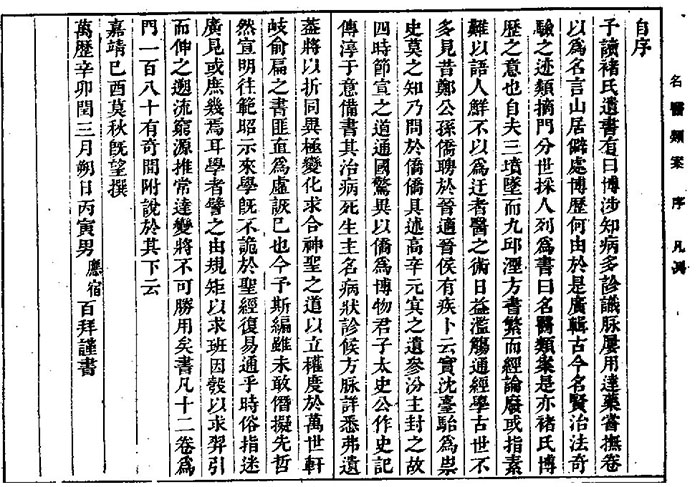 名醫類案 序
自序
予讀褚氏遺書有曰博涉知病多診識脉屢用達藥嘗撫卷
以爲名言山居僻處博歷何由於是廣輯古今名賢治法奇
驗之迹類摘門分世採人列爲書曰名醫類案是亦褚氏博
歷之意也自夫三墳墜而九邱湮方書繁而經論廢或指素
難以語人鮮不以爲迂者醫之術日益濫觴通經學古世不
多見昔鄭公孫僑聘於晉適晉侯有疾卜云實沈臺駘爲祟
史莫之知乃問於僑僑具述高辛元冥之遺參汾主封之故
四時節宣之道通國驚異以僑爲博物君子太史公作史記
傳淳于意備書其治病死生主名病狀診候方脉詳悉弗遺
葢將以折同異極變化求合神聖之道以立權度於萬世軒
岐俞扁之書匪直爲虛詼已也今予斯編雖未敢僭擬先哲
然宣明往範昭示來學旣不詭於聖經復易通乎時俗指迷
廣見或庶幾焉耳學者譬之由規矩以求班因彀以求羿引
而伸之遡流窮源推常達變將不可勝用矣書凡十二卷爲
門一百八十有奇間附說於其下云
嘉靖己酉莫秋旣望撰
萬歷辛卯閏三月朔日丙寅男應宿百拜謹書